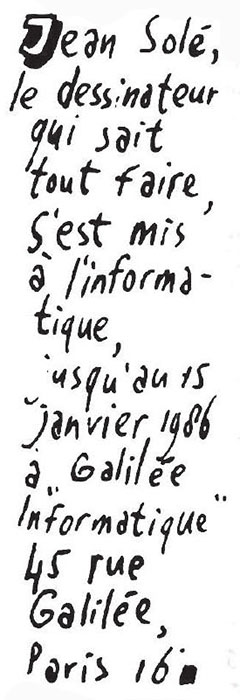 Jean Solé,
le dessinateur
qui sait
tout faire,
s'est mis
à l'informa-
tique,
jusqu'au 15
janvier 1986
à "Galilée
Informatique"
45 rue
Galilée,
Paris 16